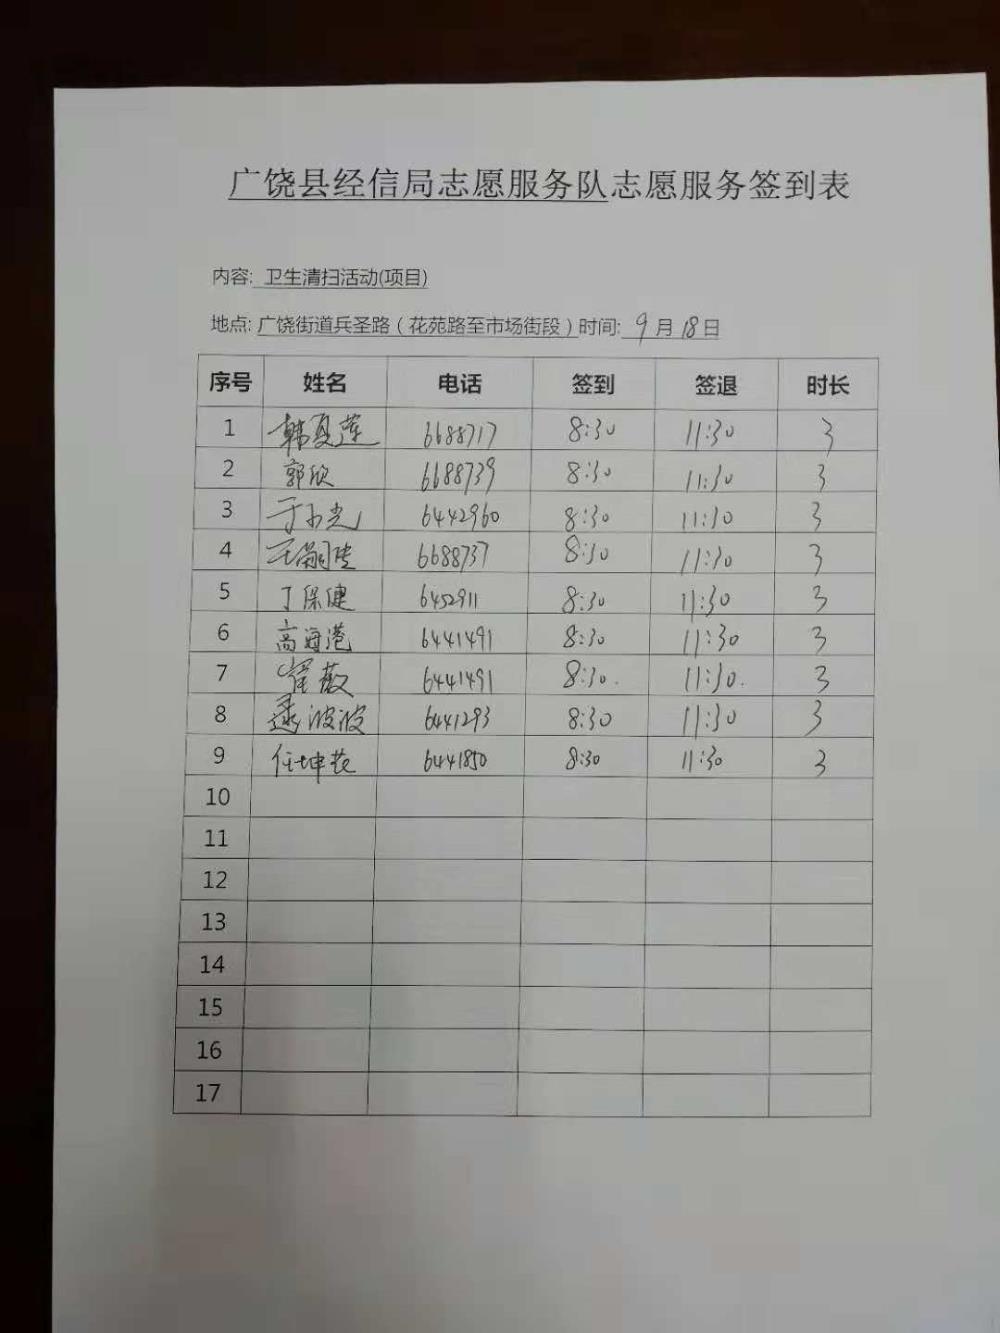 广饶县经信局志愿服务队志愿服务签到表
内容: 卫生清扫活动(项目)
地点: 广饶街道兵圣路（花苑路至市场街段）时间: 9月18日
序号 姓名 电话 签到 签退 时长
1 韩夏莲 6688717 8:30 11:30 3
2 郭欣 6688739 8:30 11:30 3
3 6442960 8:30 11:30 3
4 6688737 8:30 11:30 3
5 丁保健 6452911 8:30 11:30 3
6 高海港 6441491 8:30 11:30 3
7 崔薇 6441491 8:30. 11:30. 3
8 波波 6441293 8:30 11:30 3
9 任坤花 6441850 8:30 11:30 3
10
11
12
13
14
15
16
17